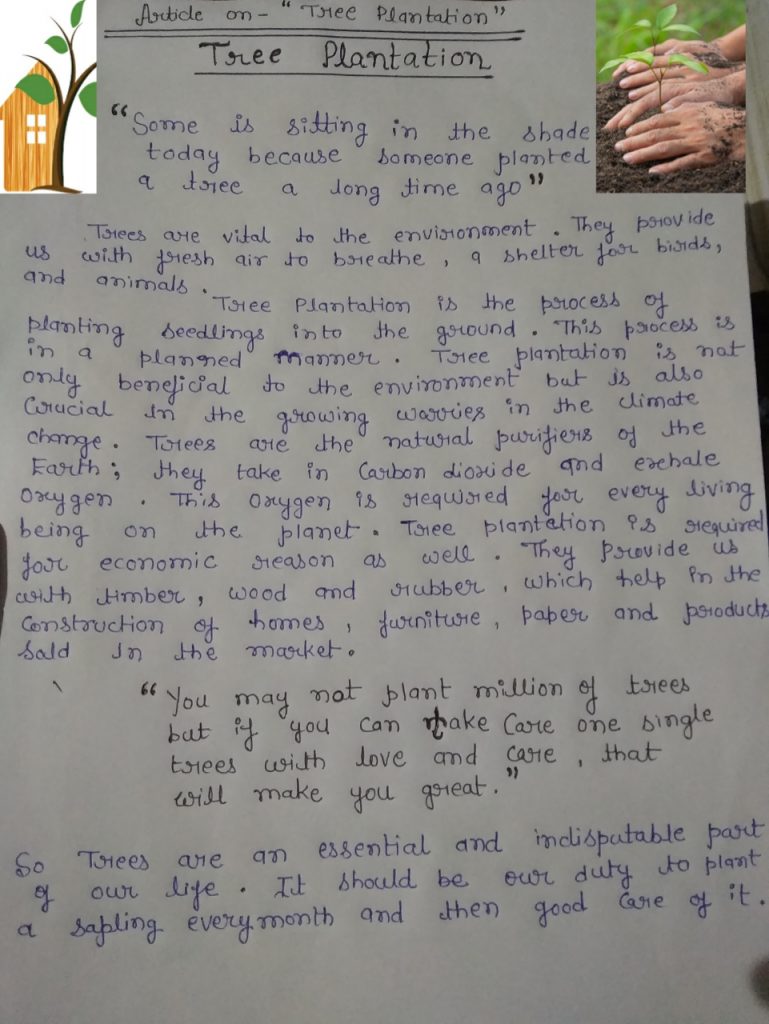 Article on - "Tree Plantation"
Tree Plantation
"Some is sitting in the shade
today because someone planted
a tree a long time ago"
Trees are vital to the environment. They provide
us with fresh air to breathe, a shelter for birds,
and animals.
Tree Plantation is the process of
planting seedlings into the ground. This process is
in a planned manner. Tree plantation is not
only beneficial to the environment but is also
Crucial in the growing worries in the climate
change. Trees are the natural purifiers of the
Earth; they take in Carbon dioxide and exhale
oxygen. This oxygen is required for every living
being on the planet. Tree plantation is required
for economic reason as well. They Provide us
with timber, wood and rubber, which help in the
Construction of homes, furniture, paper and products
Sold in the market.
"You may not plant million of trees
but if you can take Care one single
trees with love and care, that
will make you great."
So Trees are an essential and indisputable part
of our life. It should be our duty to plant
a sapling every month and then good Care of it.